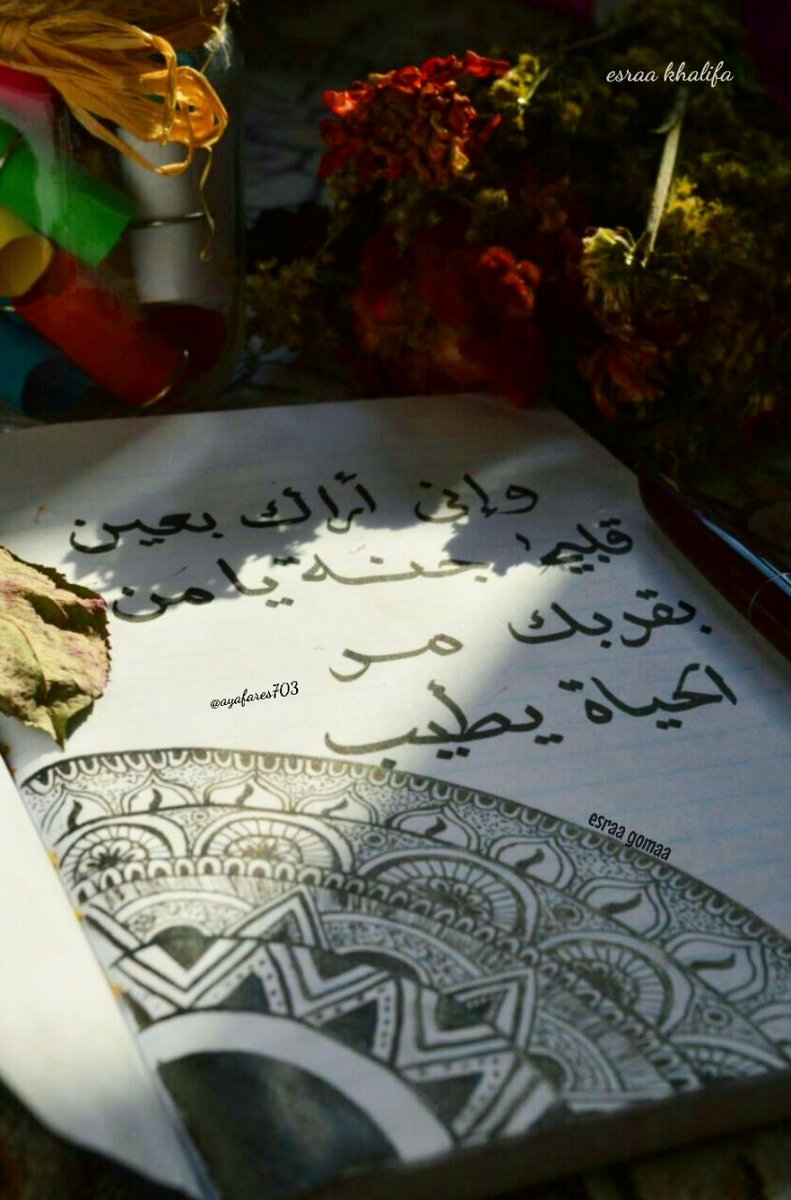 esraa khalifa
وإني أراك بعين
قلبي جنة يا من
بقربك مر
الحياة يطيب
@ayafares703
esraa gomaa